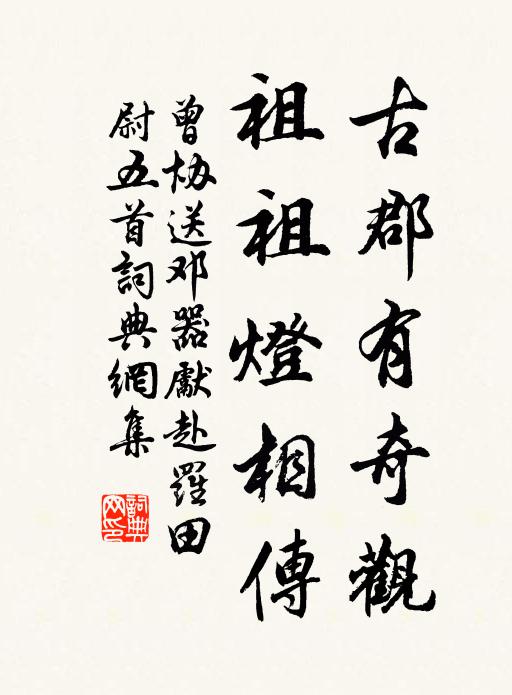 古郡有奇觀
祖祖燈相傳
曾协送邓器獻赴羅田
尉五首詞典網集
詞典網印